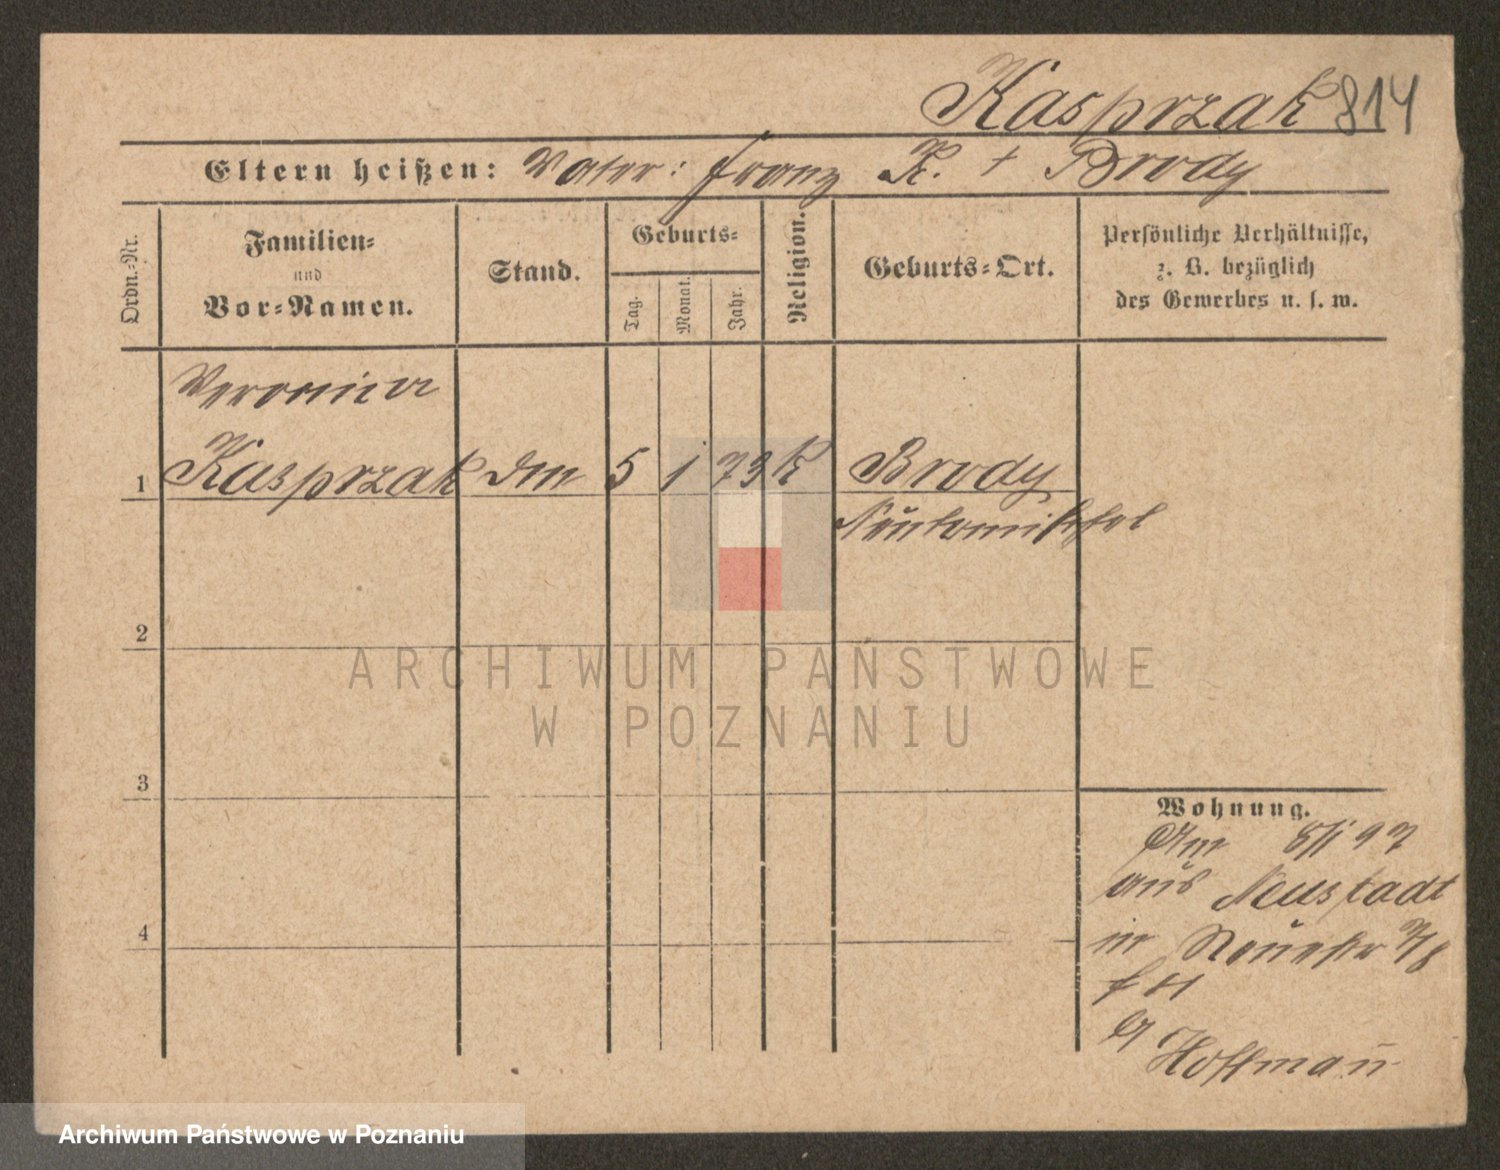 Kasprzak 814
Eltern heißen: Vater: Franz K. + Brody
Ordn.-Nr.
Familien-
und
Vor-Namen.
Stand.
Geburts-
Tag.
Monat.
Jahr.
Religion.
Geburts-Ort.
Persönliche Verhältnisse,
z. B. bezüglich
des Gewerbes u. s. w.
Veronica
1 Kasprzak 5 1 73 k Brody
Neutomischel
2
3
4
Wohnung.
Am 97
aus Neustadt
in 7/8
Hoffmann
ARCHIWUM PAŃSTWOWE
W POZNANIU
Archiwum Państwowe w Poznaniu